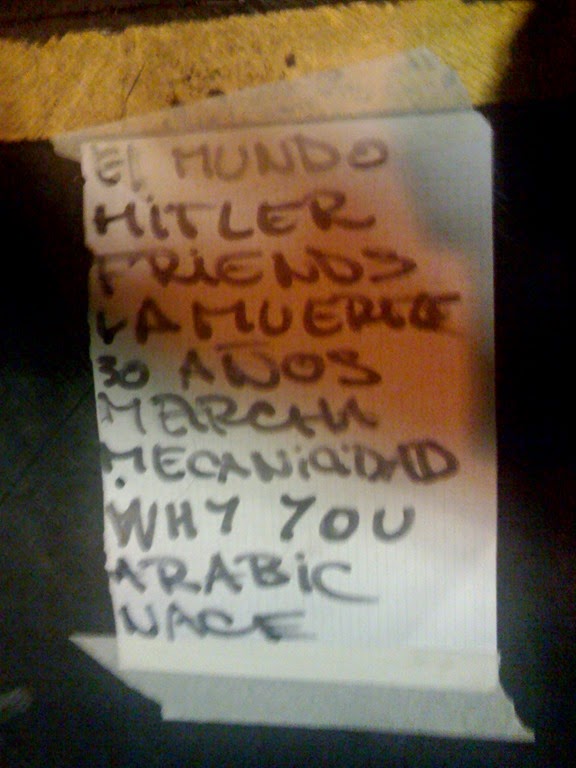 El MUNDO
HiTLER
FRiENDS
LA MUERTE
30 AÑOS
MERCAN
MECANiCiDAD
WHY YOU
ARABiC
NACE